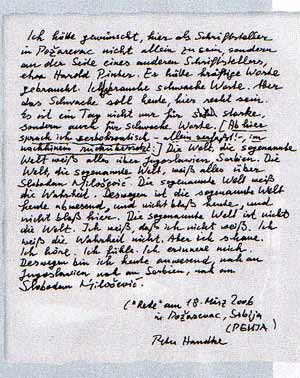 Ich hätte gewünscht, hier als Schriftsteller
in Požarevac nicht allein zu sein, sondern
an der Seite eines anderen Schriftstellers,
etwa Harold Pinter. Er hätte kräftige Worte
gebraucht. Ich brauche schwache Worte. Aber
das Schwache soll heute, hier recht sein.
Es ist ein Tag nicht nur für starke,
sondern auch für schwache Worte. [Ab hier
sprach ich serbokroatisch – allein verfaßt –
.] Die Welt, die sogenannte
Welt weiß alles über Jugoslawien, Serbien. Die
Welt, die sogenannte Welt, weiß alles über
Slobodan Milošević. Die sogenannte Welt weiß
die Wahrheit. Deswegen ist die sogenannte Welt
heute abwesend, und nicht bloß heute, und
nicht bloß hier. Die sogenannte Welt ist nicht
die Welt. Ich weiß, daß ich nicht weiß. Ich
weiß die Wahrheit nicht. Aber ich schaue.
Ich höre. Ich fühle. Ich erinnere mich.
Deswegen bin ich heute anwesend, nah an
Jugoslawien, nah an Serbien, nah an
Slobodan Milošević.
("Rede" am 18. März 2006
in Požarevac, Srbija
Peter Handke